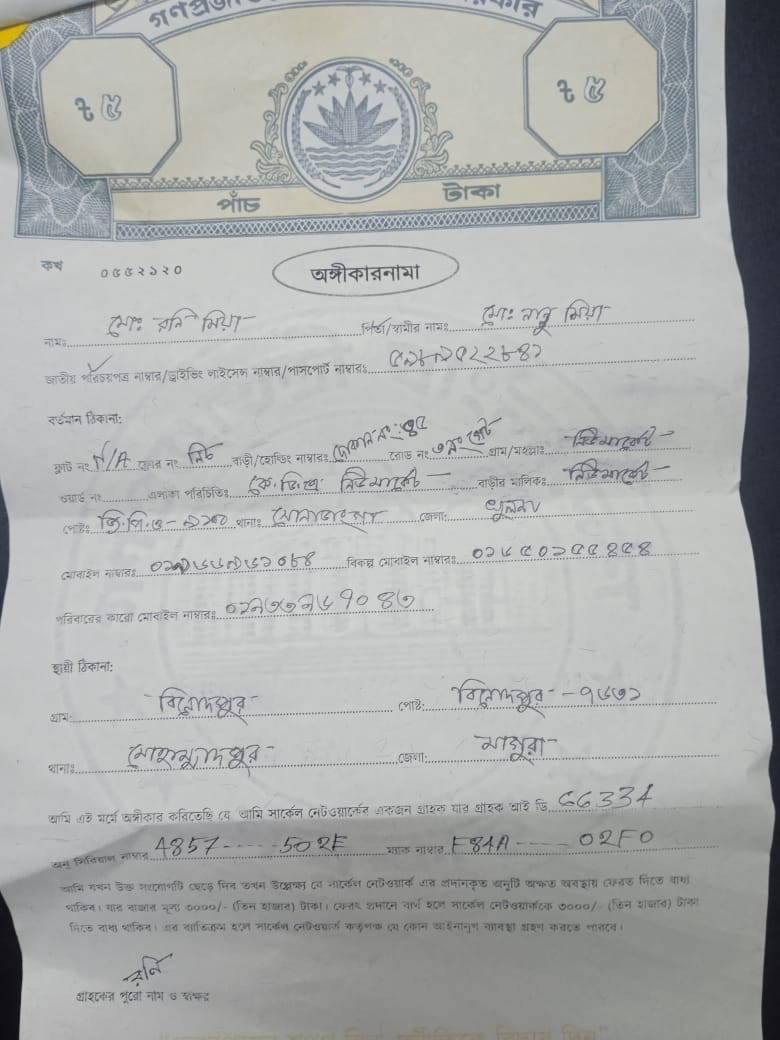 ৳ ৫
৳ ৫
পাঁচ টাকা
কথ ০৫৫২১২০
অঙ্গীকারনামা
নামঃ মোঃ রনি মিয়া পিতা/স্বামীর নামঃ মোঃ নান্নু মিয়া
জাতীয় পরিচয়পত্র নাম্বার/ড্রাইভিং লাইসেন্স নাম্বার/পাসপোর্ট নাম্বারঃ
বর্তমান ঠিকানা:
ফ্লাট নং N/A ফ্লোর নং নিচ বাড়ী/হোল্ডিং নাম্বারঃ দোকান নং: রোড নং ৩নং গেট গ্রাম/মহল্লাঃ নিউমার্কেট
ওয়ার্ড নং এলাকা পরিচিতিঃ কে.ডি.এ নিউমার্কেট বাড়ীর মালিকঃ নিউমার্কেট
পোষ্টঃ জি.পি.ও- থানাঃ সোনাডাঙ্গা জেলা: খুলনা
মোবাইল নাম্বারঃ বিকল্প মোবাইল নাম্বারঃ
পরিবারের কারো মোবাইল নাম্বারঃ
স্থায়ী ঠিকানা:
গ্রাম: বিনোদপুর পোষ্ট: বিনোদপুর - ৭৬৩১
থানাঃ মোহাম্মাদপুর জেলা: মাগুরা
আমি এই মর্মে অঙ্গীকার করিতেছি যে আমি সার্কেল নেটওয়ার্কের একজন গ্রাহক যার গ্রাহক আই ডি 66334
অনু সিরিয়াল নাম্বার 4857-----502E ম্যাক নাম্বার F84A-----02F0
আমি যখন উক্ত সংযোগটি ছেড়ে দিব তখন উল্লেখ্য যে সার্কেল নেটওয়ার্ক এর প্রদানকৃত অনুটি অক্ষত অবস্থায় ফেরত দিতে বাধ্য
থাকিব। যার বাজার মূল্য ৩০০০/- (তিন হাজার) টাকা। ফেরৎ প্রদানে ব্যর্থ হলে সার্কেল নেটওয়ার্ককে ৩০০০/- (তিন হাজার) টাকা
দিতে বাধ্য থাকিব। এর ব্যতিক্রম হলে সার্কেল নেটওয়ার্ক কর্তৃপক্ষ যে কোন আইনানুগ ব্যবস্থা গ্রহণ করতে পারবে।
রনি
গ্রাহকের পুরো নাম ও স্বাক্ষর